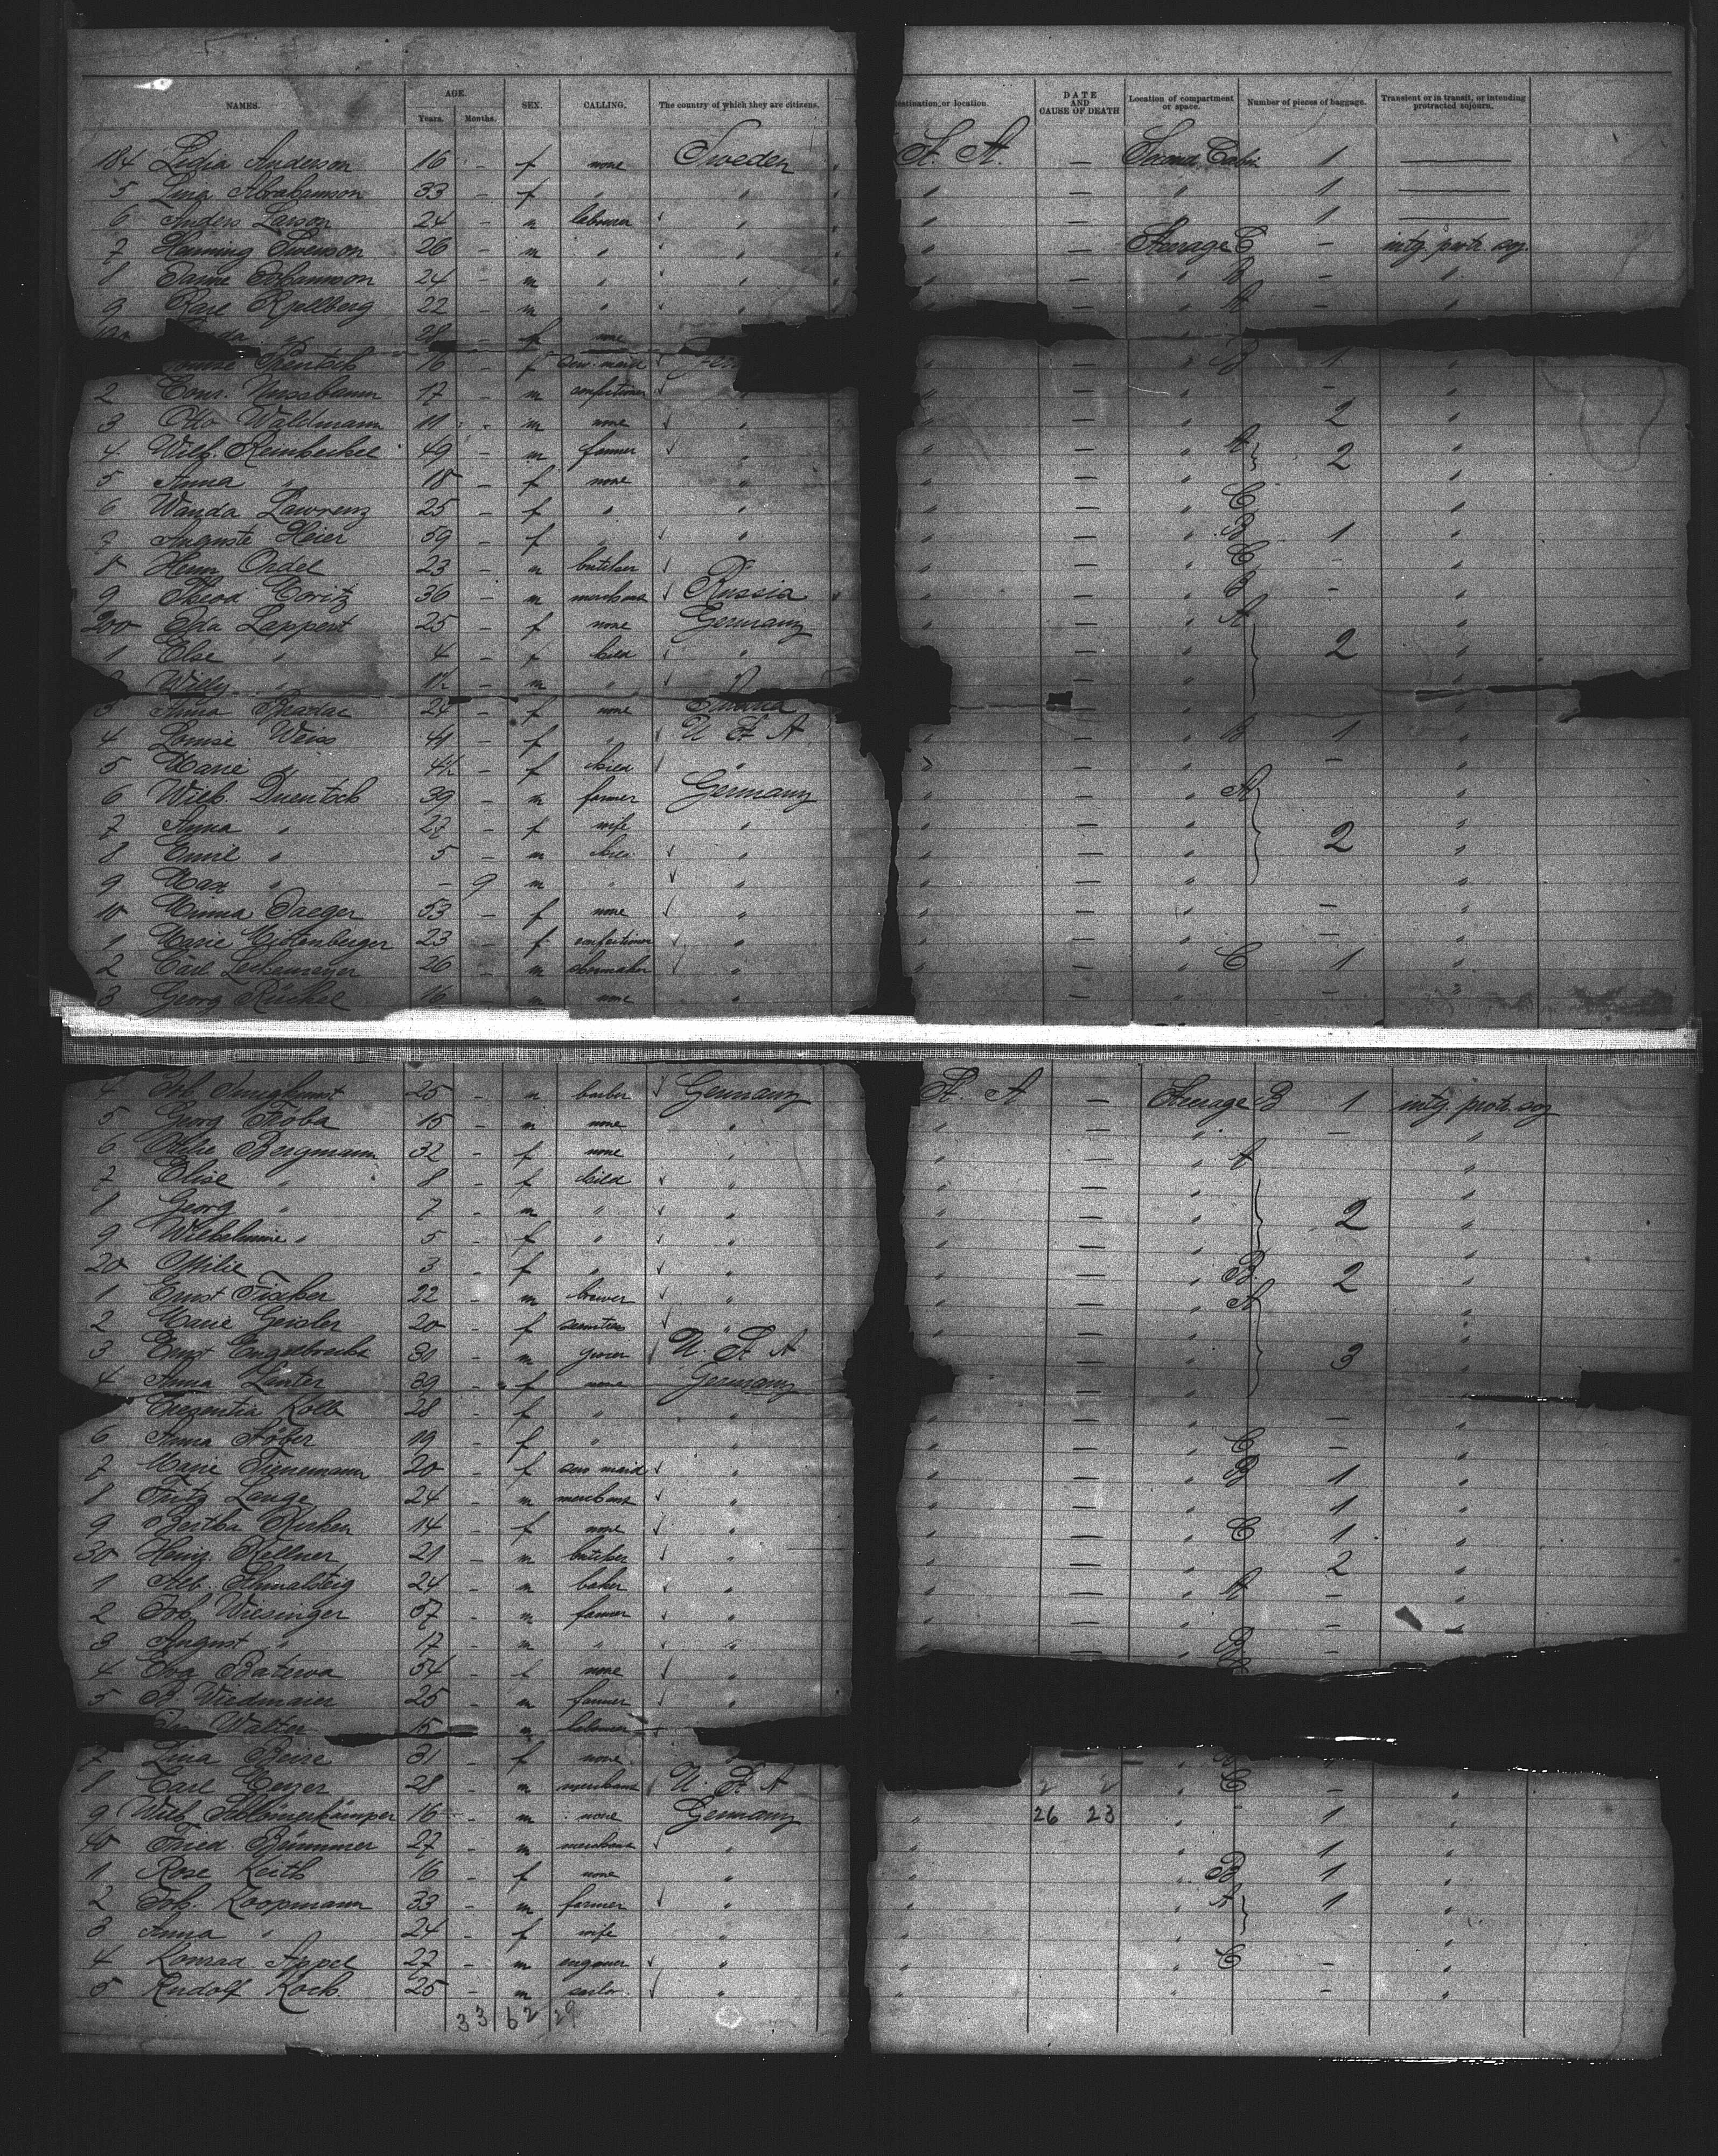 NAMES. AGE. Years. Months. SEX. CALLING. The country of which they are citizens. destination, or location. DATE AND CAUSE OF DEATH Location of compartment or space. Number of pieces of baggage. Transient or in transit, or intending protracted sojourn.
184 Lidia Anderson 16 - f none Sweden St. A. — Second Cabin 1 —
5 Lina Abrahamson 33 - f " " " — " 1 —
6 Anders Larson 24 - m labourer " " — 1 —
7 Henning Swenson 26 - m " " — Steerage C - intg protr soj.
8 Johannson 24 - m " " " — " B - "
9 Karl Kjellberg 22 - m " " " A - "
28 - f none
16 - f serv. maid " B 1 "
2 Conr. Nussbaum 17 - m confectioner " " — " - "
3 Otto Waldmann 11 - m none " " — " 2 "
4 Wilh. Reinheckel 49 - m farmer " " — " A 2 "
5 Anna " 18 - f none " " — " "
6 Wanda Lawrenz 25 - f " " " — " C "
7 Auguste Heier 59 - f " " " — " B 1 "
8 Herm Ordel 23 - m butcher " " — " C - "
9 Theod Goritz 36 - m merchant Russia " — " B - "
200 Ida Leppert 25 - f none Germany " — " A "
1 Else " 4 - f child " " — " 2 "
2 Willy " 1½ - m " " — " "
3 Anna 24 - f none "
4 Louise Weiss 41 - f " U St A " — " B 1 "
5 Marie " 4½ - f child " " — " - "
6 Wilh. Duentsch 39 - m farmer Germany " — " A "
7 Anna " 27 - f wife " " — " "
8 Emil " 5 - m child " " — " 2 "
9 Max " - 9 m " " " — " "
10 Minna Jaeger 53 - f none " " — " - "
1 Marie Mittenberger 23 - f confectioner " " — " - "
2 Carl Leckemeyer 26 - m shoemaker " " — " C 1 "
3 Georg Rückel 16 m none " " — " - "
4 Joh. 25 - m barber Germany St. A — Steerage B 1 intg protr soj
5 Georg Froba 15 - m none " " — " - "
6 Ottilie Bergmann 32 - f none " " — " A "
7 Elise " 8 - f child " " — " "
8 Georg " 7 - m " " " — " 2 "
9 Wilhelmine " 5 - f " " " — " "
20 Ottilie 3 - f " " " — " B 2 "
1 Ernst Fischer 22 - m brewer " " — " A "
2 Marie Geisler 20 - f " " — "
3 Ernst Engelbrecht 31 - m grocer U. St A " — " 3 "
4 Anna Lenter 39 - f none Germany — "
Crezentia Kolb 28 - f " " " — " - "
6 Anna 19 - f " " " — " C - "
7 Marie Tienemann 20 - f serv maid " " — " B 1 "
8 Fritz Lange 24 - m merchant " " — " 1 "
9 Bertha 14 - f none " " — " C 1 "
30 Heinr. Kellner 21 - m butcher " " — " 2 "
1 Alb. Schmalsteig 24 - m baker " " — " A - "
2 Joh. Wiesinger 57 - m farmer " " — " - "
3 August " 17 - m " " — B -
4 Eva 54 - f none "
5 B. Wiedmaier 25 - m farmer "
Walter 15 m labourer
7 Lina 31 - f none
8 Carl Meyer 28 - m merchant U. St A " C - "
9 Wilh. Schlomerkämper 16 - m none Germany " 26 23 " - 1 "
40 Fried Brümmer 27 - m merchant " " " 1 "
1 Rose Keith 16 - f none " " " B 1 "
2 Joh. Koopmann 33 - m farmer " " " A 1 "
3 Anna " 24 - f wife " " " "
4 Konrad Appel 27 - m " " " C - "
5 Rudolf Koch 25 - m sailor " " " - "
33 62 29